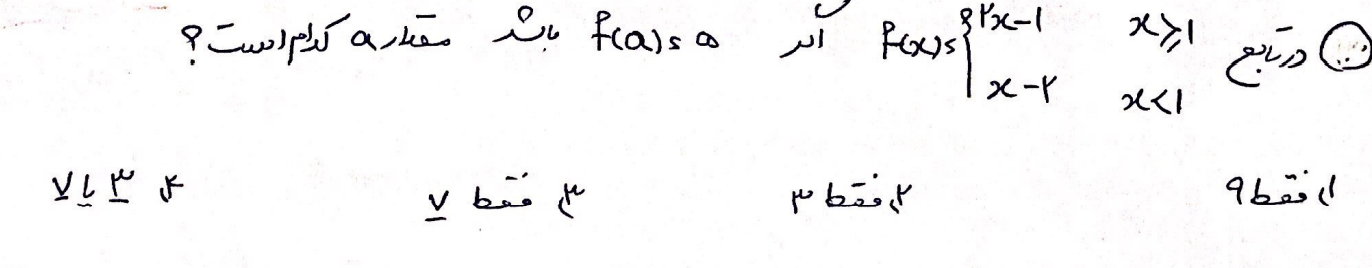 در تابع f(x) = { ۲x-۱ x ≥ ۱ اگر f(a) = ۵ باشد مقدار a کدام است؟
x-۲ x < ۱
۱) فقط ۹ ۲) فقط ۳ ۳) فقط ۷ ۴) ۳ یا ۷